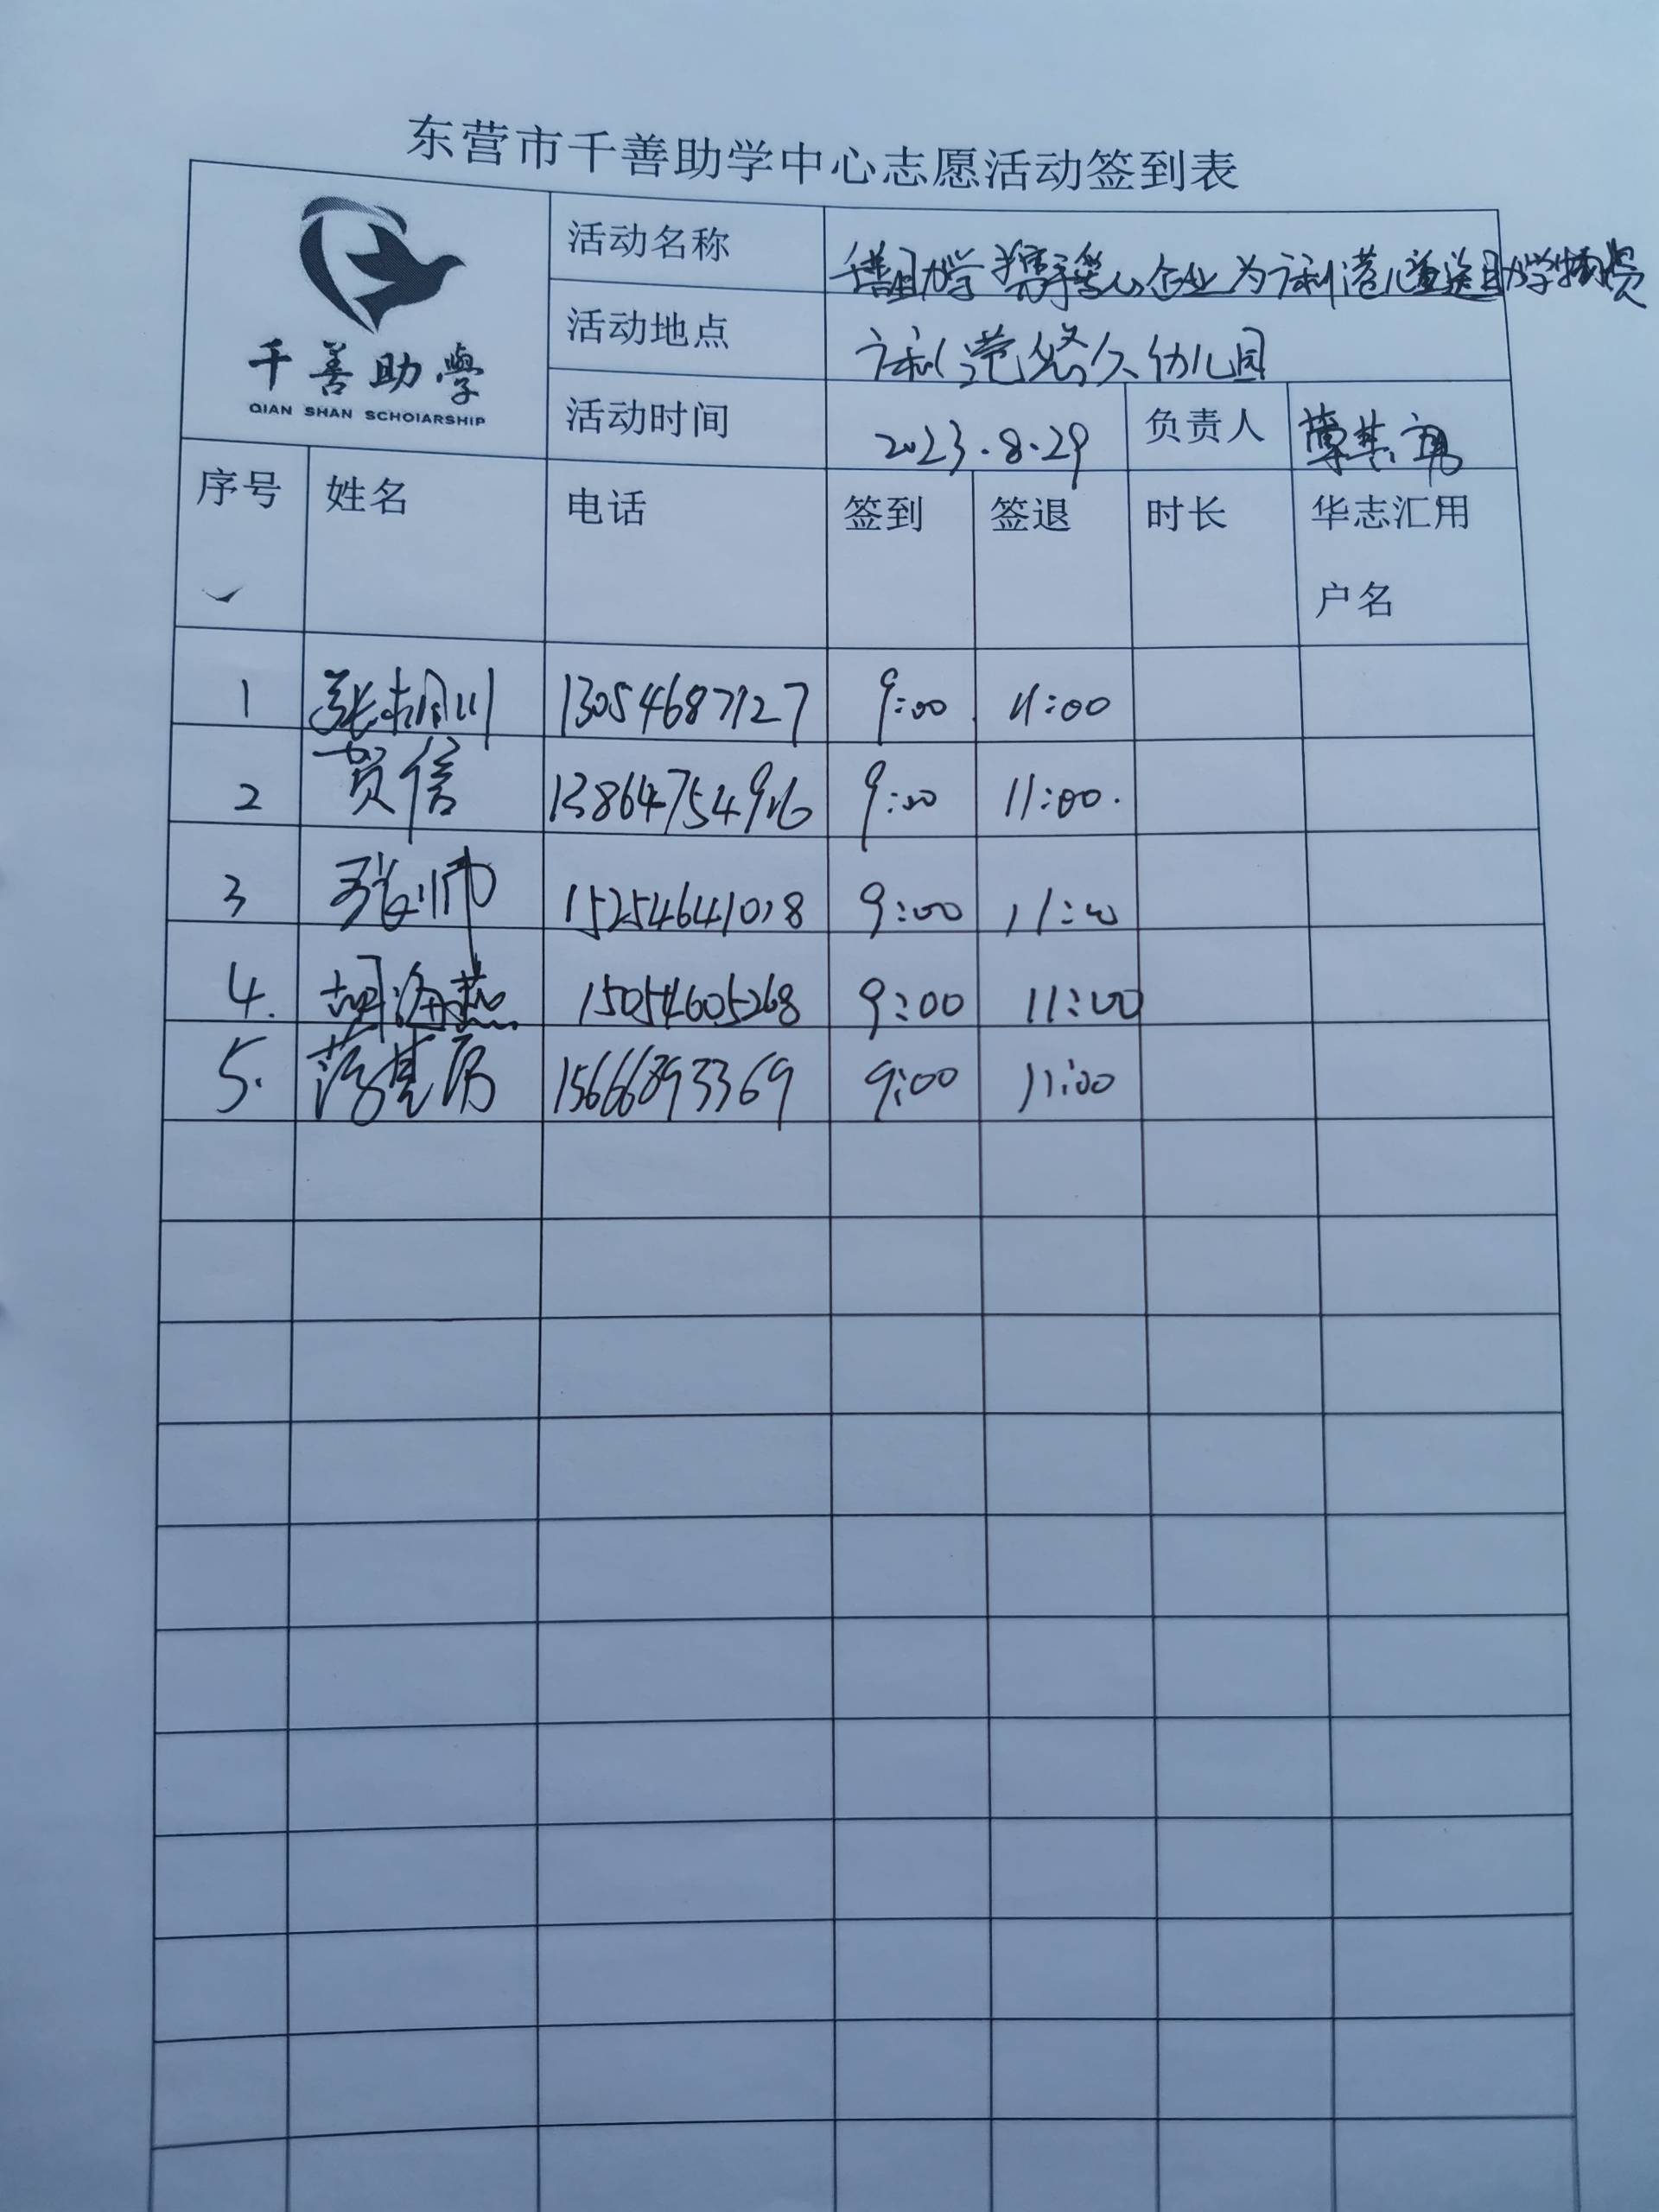 东营市千善助学中心志愿活动签到表
千善助學
QIAN SHAN SCHOIARSHIP
活动名称 千善助学携手爱心企业为刁利港儿童送助学物资
活动地点 幼儿园
活动时间 2023.8.29 负责人
序号 姓名 电话 签到 签退 时长 华志汇用
户名
1 13054687127 9:00 11:00
2 贾信 13864754916 9:00 11:00.
3 张帅 15254641018 9:00 11:00
4. 胡海燕 15054605268 9:00 11:00
5. 15666893369 9:00 11:00